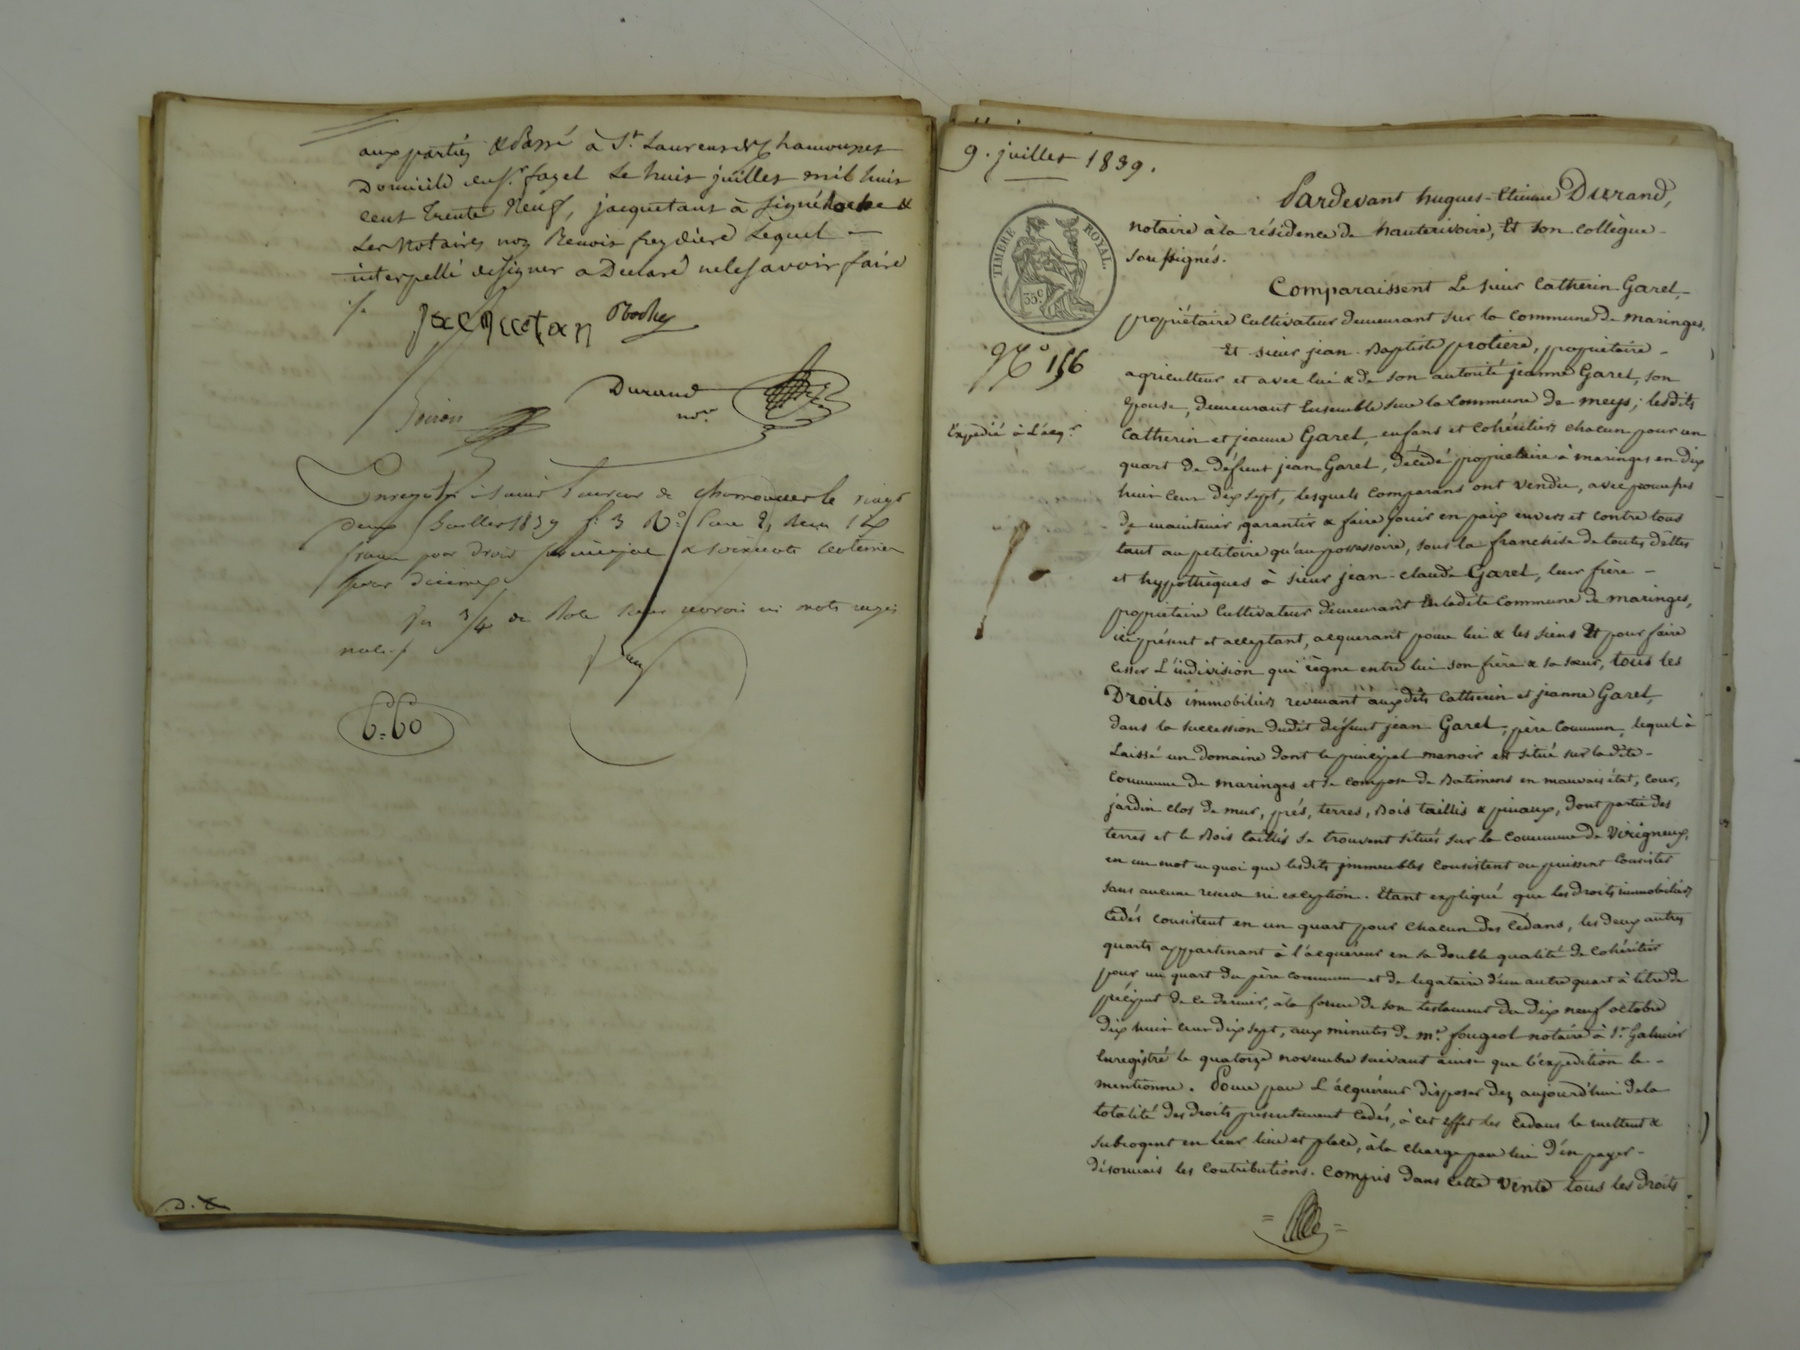 aux parties & Passé à St. Laurent de Chamousset
Domicile du Sr. fayel Le huit juillet mil huit
cent trente Neuf, jacquetant à signé &
Les Notaires non Benoit freydiere Lequel —
interpellé de signer a Declaré ne le savoir faire
Jacquetan
Durand
nore.
Enregistré à Saint Laurent de Chamousset le vingt
deux Juillet 1839 fo. 3 Ro. Case 2, Reçu six
francs pour droit principal & soixante centimes
pour décime
6=60
9. juillet 1839.
Pardevant hugues-Etienne Durand,
notaire à la résidence de hauterivoire, Et son collègue
soussignés.
TIMBRE ROYAL.
35 c
Comparaissent Le sieur Catherin Garel,
propriétaire Cultivateur demeurant sur la Commune de maringes,
No 156
Et sieur jean-Baptiste protiere, propriétaire
agriculteur et avec lui & de son autorité jeanne Garel, son
épouse, demeurant Ensemble sur la Commune de meys; lesdits
Expédié à L'acqr.
Catherin et jeanne Garel, enfans et Cohéritiers chacun pour un
quart de défunt jean Garel, décédé propriétaire à maringes en dix
huit cent dix sept, lesquels Comparans ont vendu, avec promesse
de maintenir, garantir & faire jouir en paix envers et contre tous
tant au petitoire qu'au possessoire, sous la franchise de toutes dettes
et hypothèques à sieur jean-claude Garel, leur frère
propriétaire Cultivateur demeurant En ladite Commune de maringes,
ici présent et acceptant, acquerant pour lui & les siens Et pour faire
cesser L'indivision qui règne entre lui son frère & sa sœur, tous les
Droits immobiliers revenant auxdits Catherin et jeanne Garel,
dans la succession dudit défunt jean Garel, père Commun, lequel à
Laissé un domaine dont le principal manoir est situé sur la dite
Commune de maringes et se compose de Batimens en mauvais état, cour,
jardin clos de mur, prés, terres, Bois taillis & pinaux, dont partie des
terres et le Bois taillis se trouvent situés sur la Commune de Virigneux,
en un mot en quoi que lesdits immeubles Consistent ou puissent Consister
sans aucune reserve ni exception. Etant expliqué que les droits immobiliers
Cédés consistent en un quart pour chacun des Cédans, les deux autres
quarts appartenant à l'acquéreur en sa double qualité de Cohéritier
pour un quart du père commun et de legataire d'un autre quart à titre de
préciput de ce dernier, à la forme de son testament du dix neuf octobre
dix huit cent dix sept, aux minutes de me. fougerol notaire à St. Galmier
Enregistré le quatorze novembre suivant ainsi que l'expédition le
mentionne. Pour par L'acquéreur disposer dez aujourd'hui de la
totalité des droits présentement Cédés, à cet effet les Cédans le mettent &
subrogent en leur lieu et place, à la charge par lui d'en payer
désormais les Contributions. Compris dans cette vente tous les droits